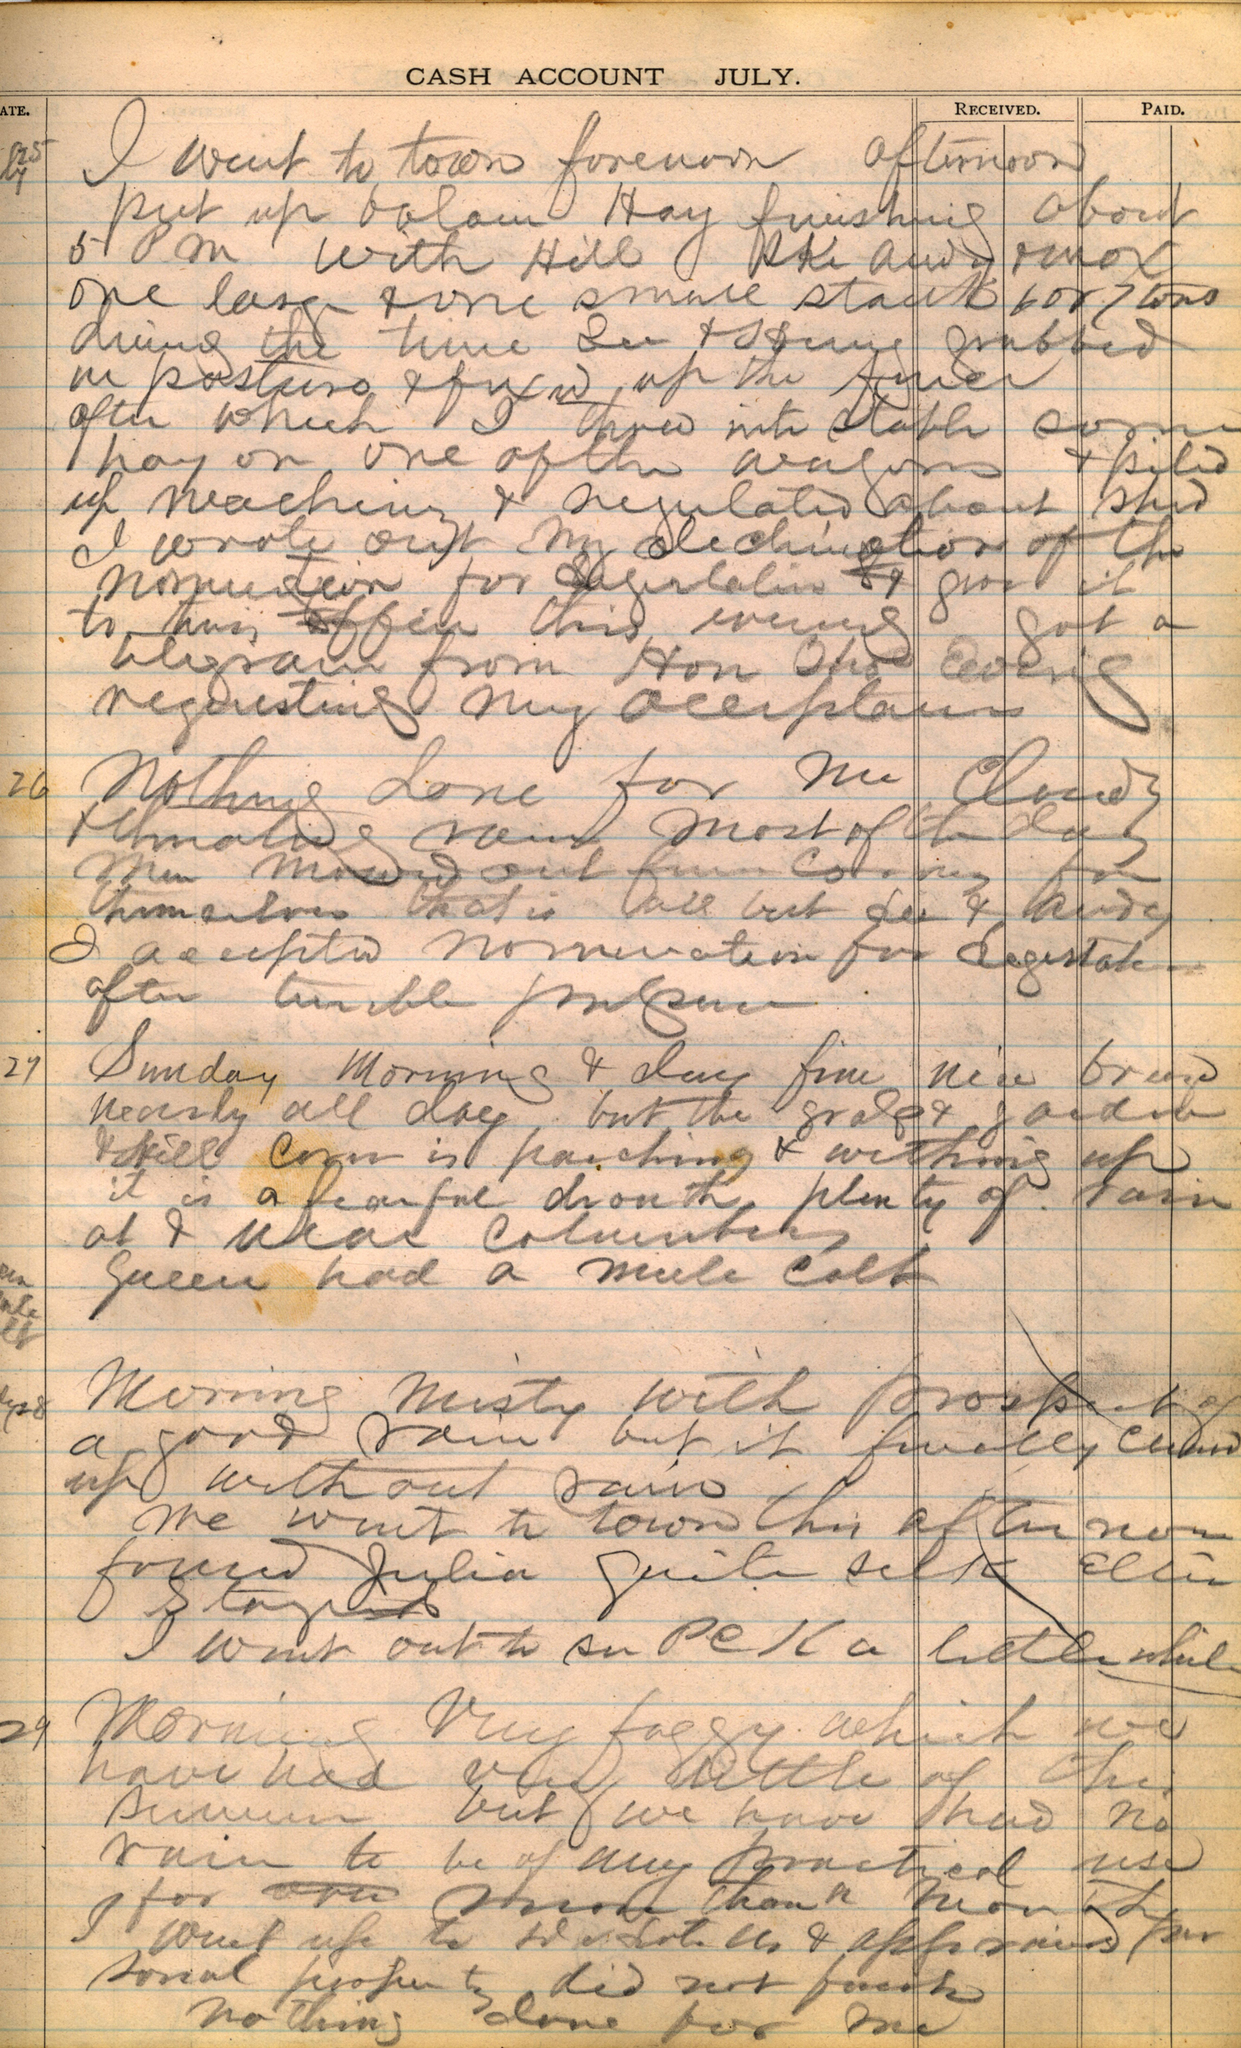 CASH ACCOUNT JULY.
ATE. RECEIVED. PAID.
25 I went to town forenoon afternoon
put up Hay finishing about
5 PM with Hill Andy & Mox
one large & one small stack 6 or 7 tons
during the time Lee & grubbed
in pasture & fixed up the
after which I threw into stable some
hay on one of the wagons & piled
up & regulated about shed
I wrote out my declination of the
nomination for & gave it
to this evening got a
telegram from Hon Ewing
requesting my acceptance
26 Nothing done for me Cloudy
& threatning rain most of the day
men mowed out for
themselves that is all but Lee & Andy
I accepted nomination for Legislature
after
27 Sunday Morning & day fine nice breeze
nearly all day but the grass & garden
& hill corn is parching & withing up
it is a fearful drouth plenty of rain
at & near Columbus
Queen had a mule Colt
28 Morning Misty with prospect of
a good rain but it finally cleard
up without rain
We went to town this afternoon
found Julia quite sick
Stayed
I went out to see PCK a little while
29 Morning Very foggy which we
have had very little of this
summer but we have had no
rain to be of any practical use
for more than a month
I went up to & appraised per
sonal property did not finish
nothing done for me